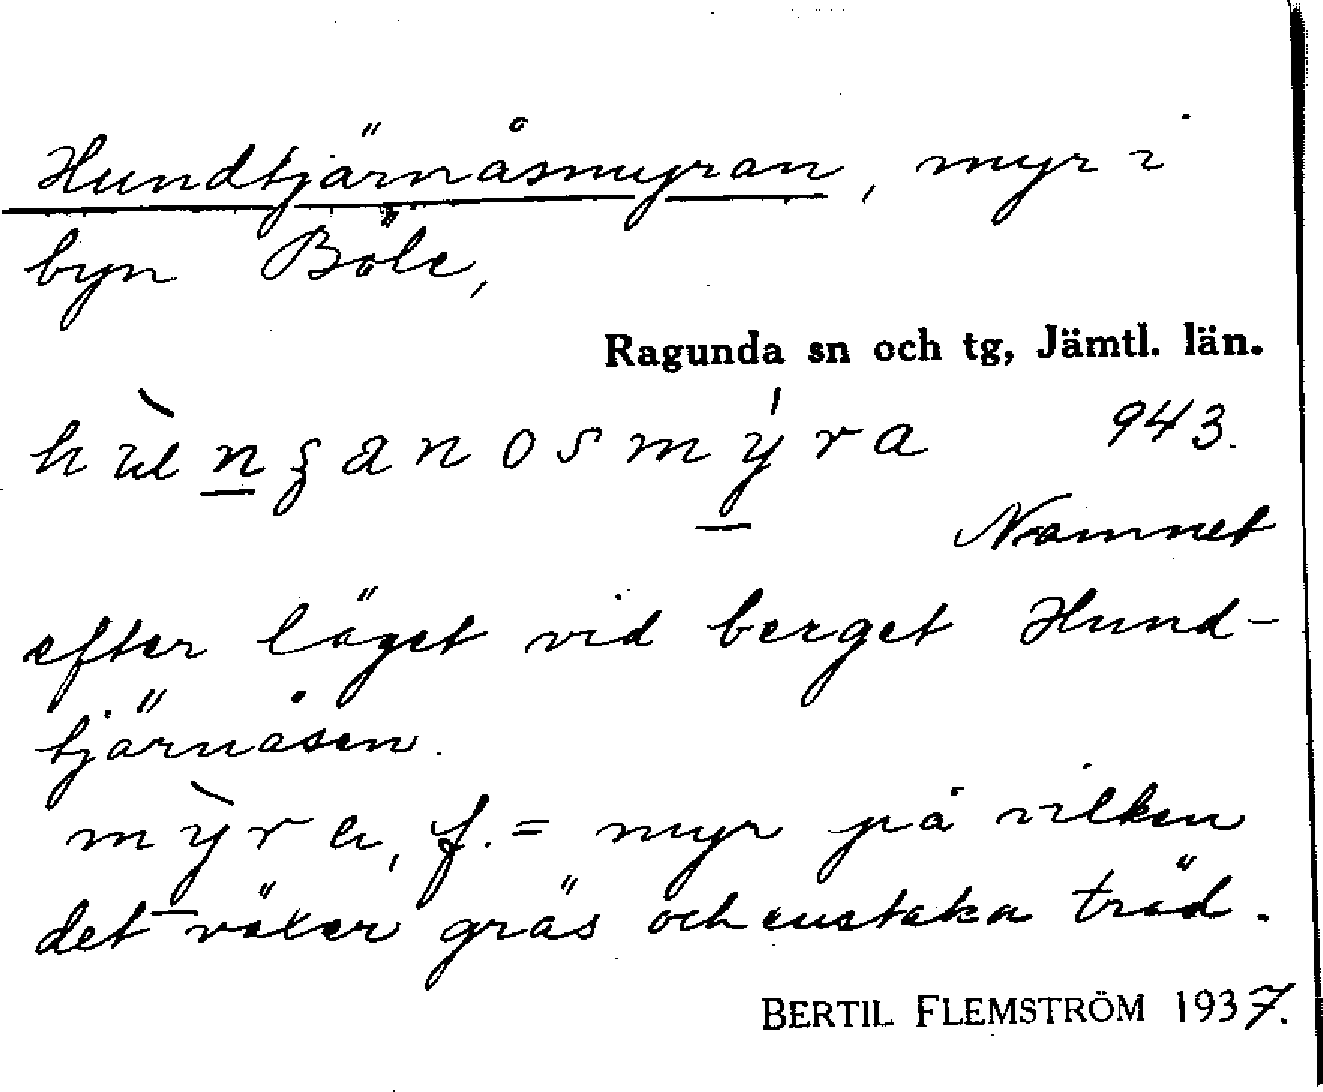 Hundtjärnåsmyran, myr i
byn Böle,
Ragunda sn och tg, Jämtl. län.
943.
Namnet
efter läget vid berget Hund-
tjärnåsen.
myra, f. = myr på vilken
det växer gräs och enstaka träd.
BERTIL FLEMSTRÖM 1937.